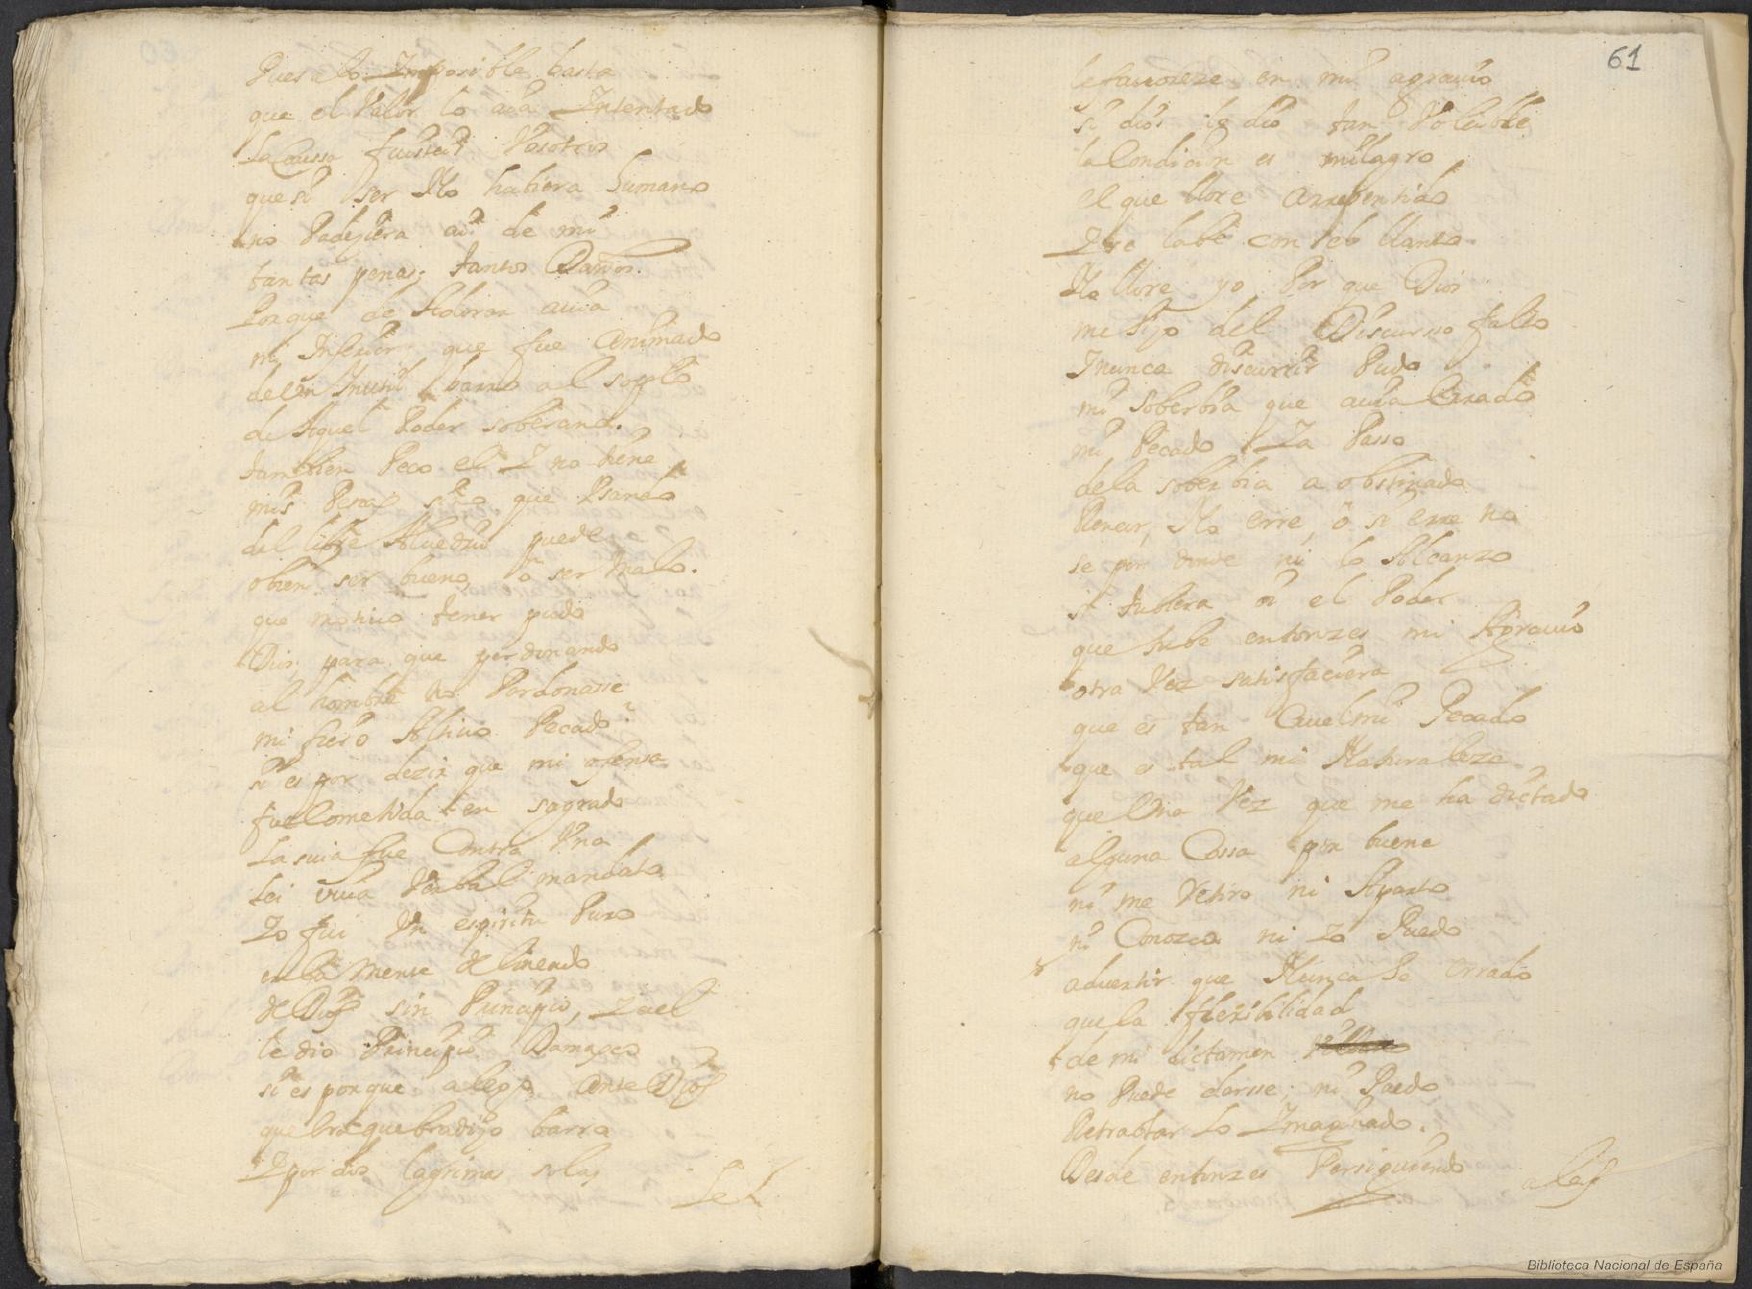 Pues a lo Imposible basta
que el Valor lo aia Intentado
La Caussa fuisteis Vosotros
que si ser No hubiera humano
no Padeziera aun de mi
tantas penas, tantos Daños.
Porque de Adorar auia
mi Inferior que fue animado
de Un Inutil barro al soplo
de Aquel Poder soberano.
tambien Peco el I no tiene
mas Pesar sino que Vsando
del libre Aluedrio puede
o bien ser bueno, o ser Malo.
que motiuo tener pudo
Dios para que perdonando
al hombre no Perdonasse
mi fiero Altiuo Pecado
si es por dezir que mi ofensa
fue Cometida en sagrado
La suia fue Contra Vna
lei viua Verbal mandato
Io fui Vn espiritu Puro
en la Mente delineado
de Dios sin Principio, I a el
le dio Principio Damasco
si es porque alega ante Dios
que
I por dos lagrimas solas
le f
61
le fauoreze en mi agrauio
si dios le dio tan Voluble
la Condicion es milagro
el que llore arrepentido
I se labe con el llanto
No llore yo Por que Dios
me hizo del Discurso falto
I nunca discurrir Pudo
mi soberbia que auia Errado
mi Pecado I a Passo
de la soberbia a obstinado
Pensar, No erre, o si erre no
se por donde ni lo Alcanzo
si tubiera oi el Poder
que tube entonzes mi Agrauio
otra Vez satisfaciera
que es tan Cruel mi Pecado
que es tal mi Naturaleza
que Una Vez que me ha dictado
alguna Cossa por buena
ni me Retiro ni Aparto
ni Conozco ni Io Puedo
aduertir que Nunca he errado
que la flexibilidad
de mi dictamen
no Puede darse; ni Puedo
Retractar Lo Imaginado.
Desde entonzes Persiguiendo
a las
Biblioteca Nacional de España